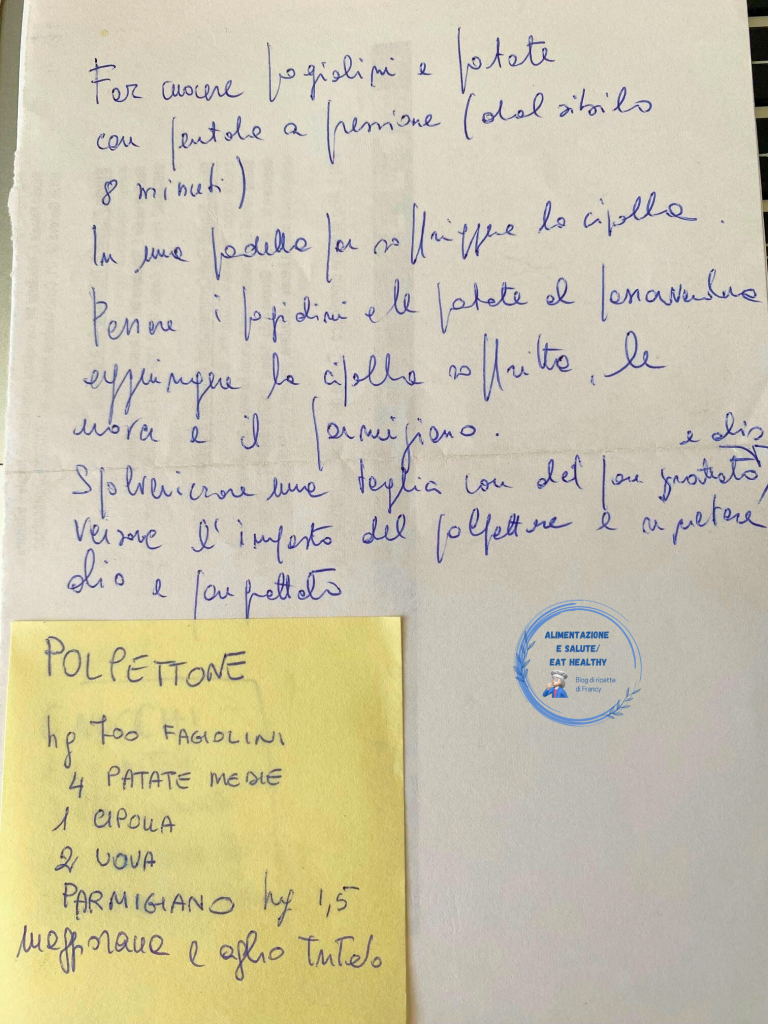 Far cuocere fagiolini e patate
con pentola a pressione (dal sibilo
8 minuti)
In una padella far soffriggere la cipolla.
Passare i fagiolini e le patate al passaverdura
aggiungere la cipolla soffritta, le
uova e il parmigiano.
e olio
Spolverizzare una teglia con del pan grattato,
versare l'impasto del polpettone e ripetere
olio e pan grattato
POLPETTONE
hg 700 FAGIOLINI
4 PATATE MEDIE
1 CIPOLLA
2 UOVA
PARMIGIANO hg 1,5
maggiorana e aglio tritato
ALIMENTAZIONE
E SALUTE/
EAT HEALTHY
Blog di ricette
di Francy